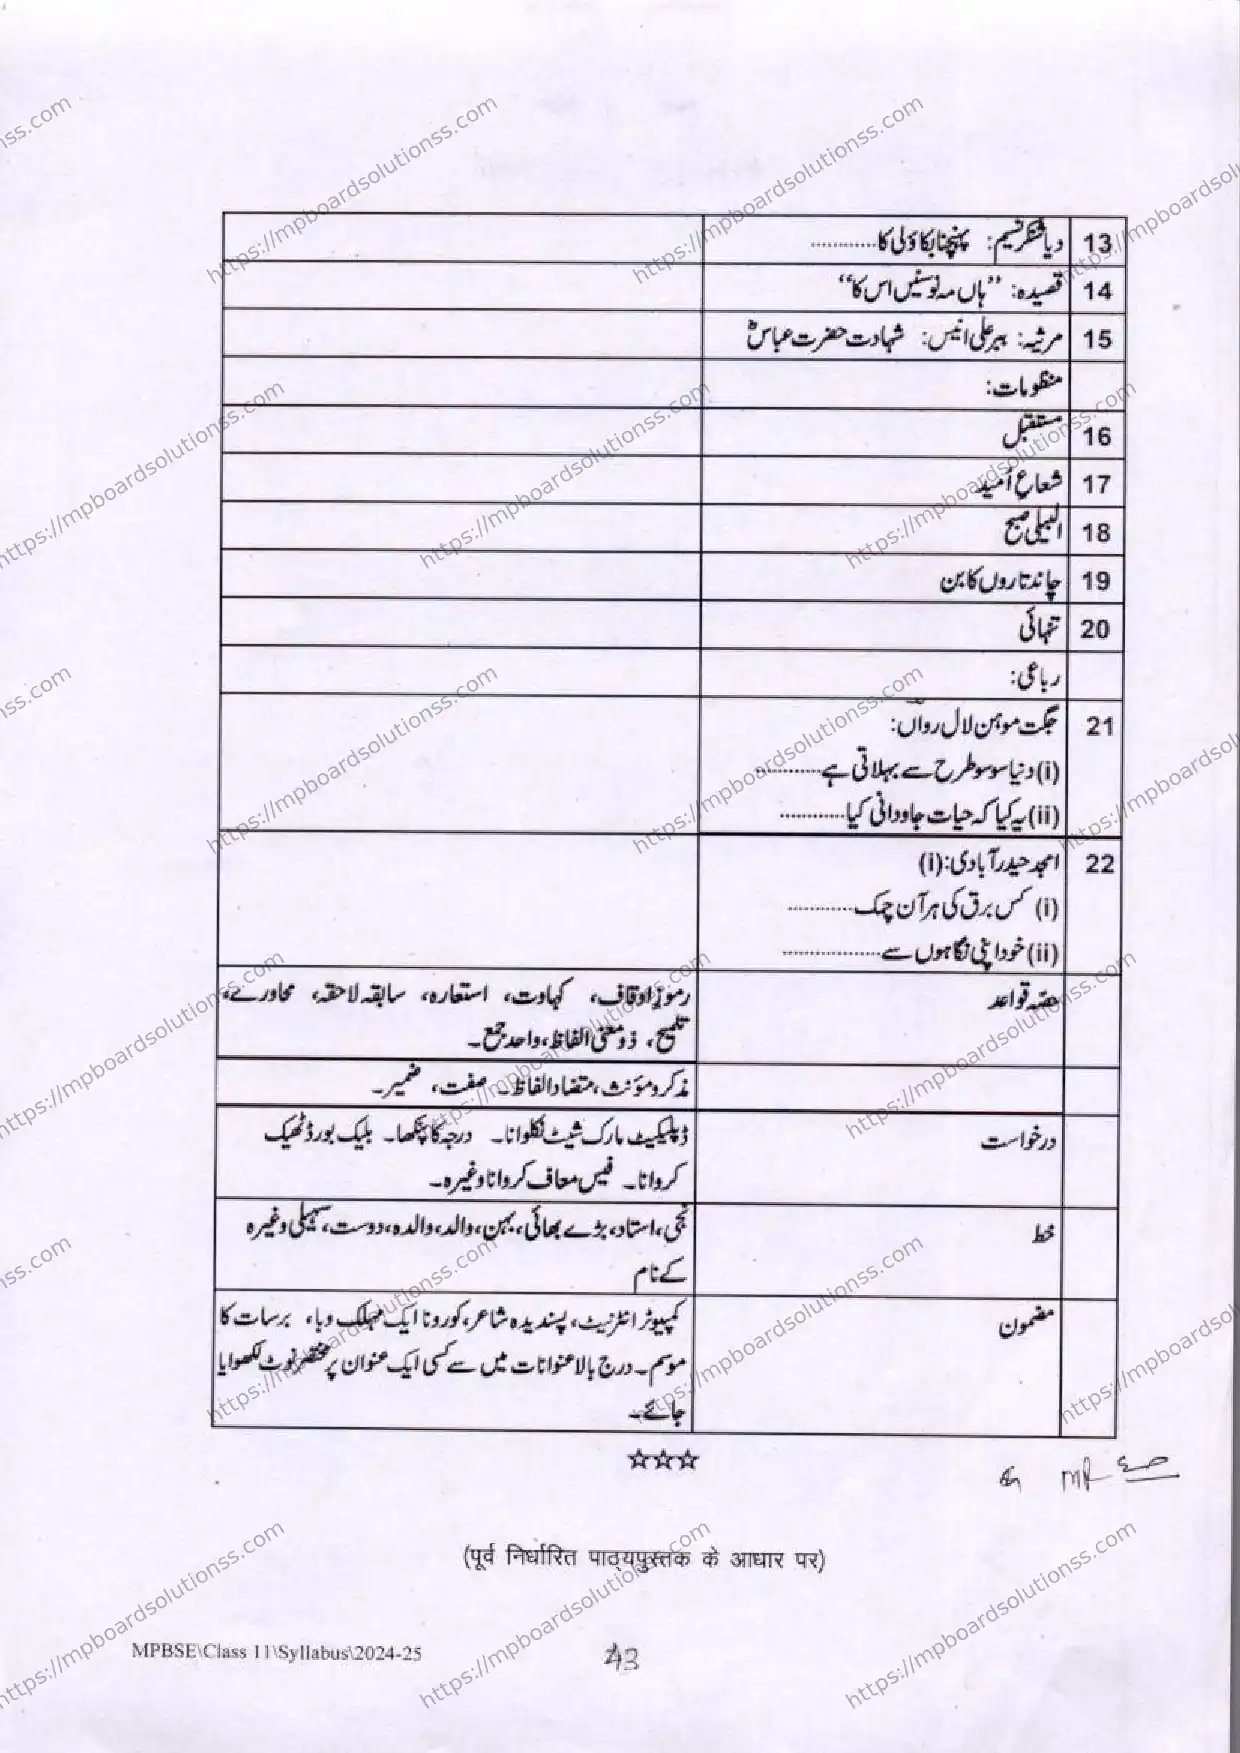 13 دیا شنکر نسیم: پہنچنا بکاؤلی کا............
14 قصیدہ: ”ہاں مہ نو سنیں اس کا“
15 مرثیہ: ببر علی انیس: شہادت حضرت عباسؓ
منظومات:
16 مستقبل
17 شعاع اُمید
18 البیلی صبح
19 چاند تاروں کا بن
20 تنہائی
رباعی:
21 جگت موہن لال رواں:
(i) دنیا سو سو طرح سے بہلاتی ہے............
(ii) یہ کیا کہ حیات جاودانی کیا............
22 امجد حیدرآبادی: (i)
(i) کس برق کی ہر آن چمک............
(ii) خود اپنی نگاہوں سے..................
حصّہ قواعد
رموز اوقاف، کہاوت، استعارہ، سابقہ لاحقہ، محاورے،
تلمیح، ذو معنی الفاظ، واحد جمع۔
مذکر و مؤنث، متضاد الفاظ۔ صفت، ضمیر۔
درخواست
ڈپلیکیٹ مارک شیٹ نکلوانا۔ درجہ کا پنکھا۔ بلیک بورڈ ٹھیک
کروانا۔ فیس معاف کروانا وغیرہ۔
خط
نجی، استاد، بڑے بھائی، بہن، والد، والدہ، دوست، سہیلی وغیرہ
کے نام
مضمون
کمپیوٹر انٹرنیٹ، پسندیدہ شاعر، کورونا ایک مہلک وبا، برسات کا
موسم۔ درج بالا عنوانات میں سے کسی ایک عنوان پر مختصر نوٹ لکھوایا
جائے۔
☆☆☆
(पूर्व निर्धारित पाठयपुस्तक के आधार पर)
MPBSE\Class 11\Syllabus\2024-25
43
https://mpboardsolutionss.com